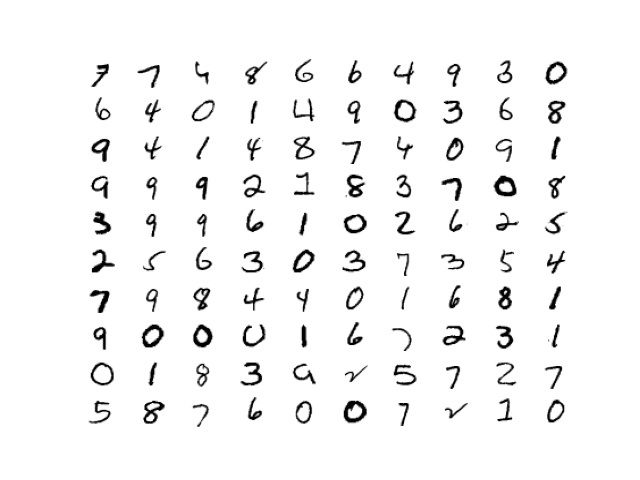 7 7 4 8 6 6 4 9 3 0
6 4 0 1 4 9 0 3 6 8
9 4 1 4 8 7 4 0 9 1
9 9 9 2 1 8 3 7 0 8
3 9 9 6 1 0 2 6 2 5
2 5 6 3 0 3 7 3 5 4
7 9 8 4 4 0 1 6 8 1
9 0 0 0 1 6 7 2 3 1
0 1 8 3 9 2 5 7 2 7
5 8 7 6 0 0 7 2 1 0